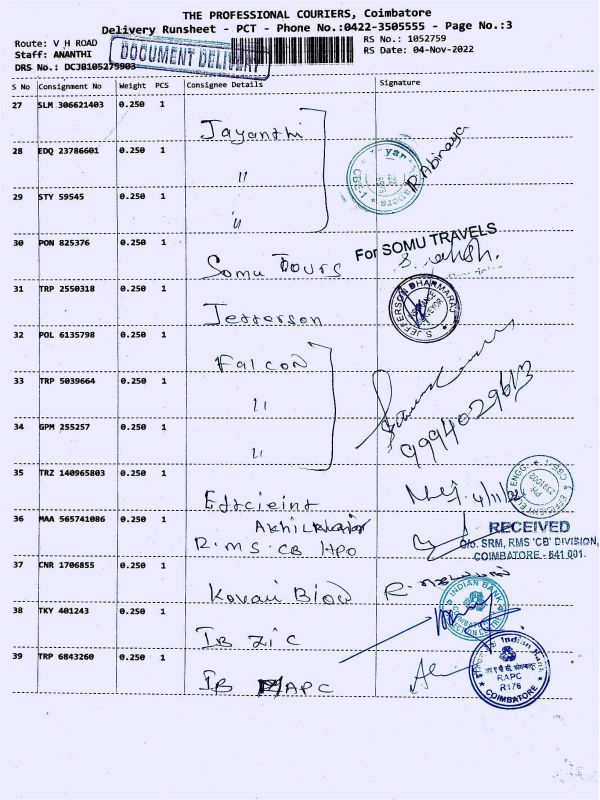 THE PROFESSIONAL COURIERS, Coimbatore
Delivery Runsheet - PCT - Phone No.:0422-3505555 - Page No.:3
Route: V H ROAD
RS No.: 1052759
Staff: ANANTHI
RS Date: 04-Nov-2022
DRS No.: DCJB105275903
DOCUMENT DELIVERY
S No Consignment No Weight PCS Consignee Details Signature
27 SLM 306621403 0.250 1
Jayanthi
28 EDQ 23786601 0.250 1
"
R. Abinaya
29 STY 59545 0.250 1
"
30 PON 825376 0.250 1
Somu Tours
For SOMU TRAVELS
31 TRP 2550318 0.250 1
Jefferson
S. JEFFERSON DHARMARAJ
32 POL 6135798 0.250 1
Falcon
33 TRP 5039664 0.250 1
"
9994029613
34 GPM 255257 0.250 1
"
35 TRZ 140965803 0.250 1
Efficieint
4/11/22
36 MAA 565741086 0.250 1
R.M.S. CB HPO
RECEIVED
O/o. SRM, RMS 'CB' DIVISION,
COIMBATORE - 641 001.
37 CNR 1706855 0.250 1
Kovai Bioo
38 TKY 401243 0.250 1
IB ZIC
INDIAN BANK
39 TRP 6843260 0.250 1
IB RAPC
Indian Bank
RAPC
R176
COIMBATORE